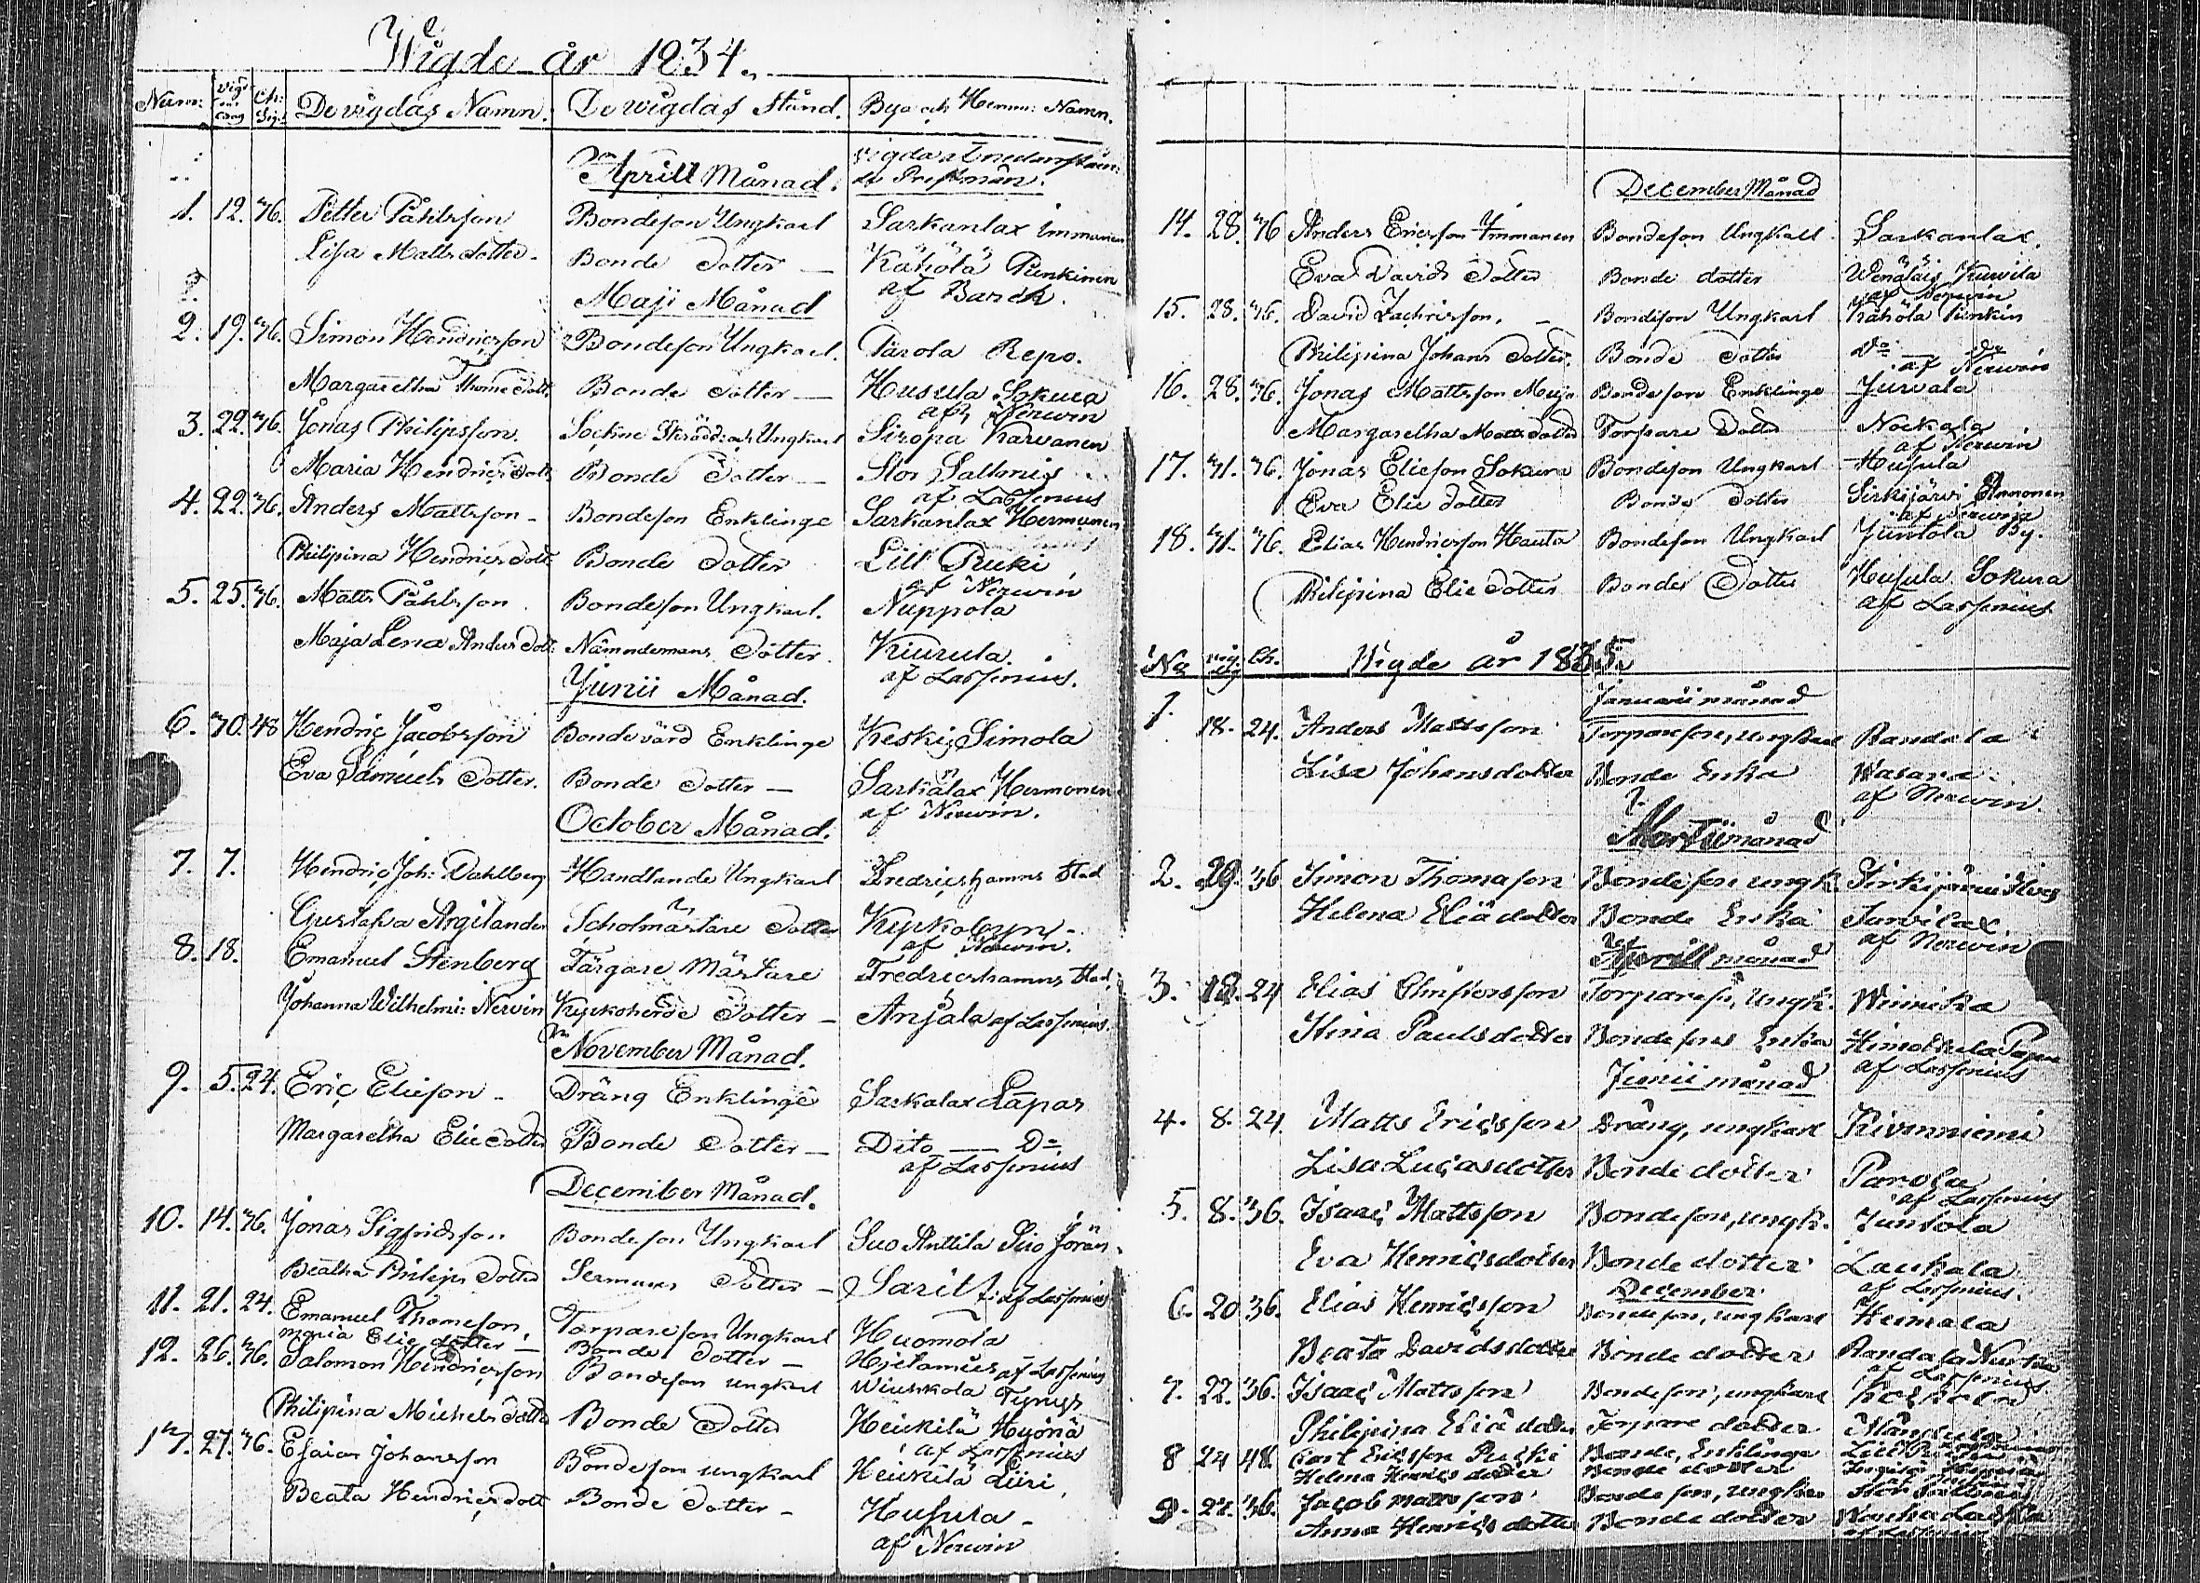 Wigde år 1834.
Num: Vigs Ch: Sig: De vigdas Namn. De wigdas Stånd. Bya och Hemm: Namn.
Aprill Månad. vigda af nedanstående Prestmän.
1. 12. 36. Petter Påhlsson Bondeson Ungkarl Sarkanlax Immanen
Lisa Matts dotter - Bonde Dotter — Kähölä Punkinen
af Barck.
Maji Månad
2. 19. 36. Simon Hendricsson Bondeson Ungkarl. Pärola Repo.
Margaretha Thome Dott: Bonde Dotter — Husula Sokura
af Nerwin
3. 22. 36. Jonas Philipsson. Sockne Skrädd: och Ungkarl Siropa Karvanen
Maria Hendrics Dott: Bonde Dotter — Stor Sallmis
af Lassenius
4. 22. 36. Anders Mattsson - Bondeson Enklinge Sarkanlax Hermunen
Philipina Hendrics dott: Bonde Dotter Lill Pucki
af Nerwin
5. 25. 36. Matts Påhlsson Bondeson Ungkarl. Nuppola
Maja Lena Anders Dott: Nämndemans Dotter. Kiurula.
af Lassenius.
Junii Månad.
6. 30. 48 Hendric Jacobsson Bondevärd Enklinge Keski Simola
Eva Samuels Dotter. Bonde Dotter — Sarkalax Hermonen
af Nerwin.
October Månad.
7. 7. Hendric Joh: Dahlberg Handlande Ungkarl Fredricshamns Stad
Gustafva Argilander Scholmästare Dotter Kyrkobyn -
af Nerwin.
8. 18. Emanuel Stenberg Färgare Mästare Fredricshamns Stad
Johanna Wilhelmi: Nervin Kyrkoherde Dotter — Anjala af Lassenius.
November Månad.
9. 5. 24. Eric Elieson - Dräng Enklinge Sarkalax Lapar
Margaretha Elie Dotter Bonde Dotter — Dito — Do
af Lassenius
December Månad.
10. 14. 36. Jonas Sigfridsson Bondeson Ungkarl Suo Anttila Suo Jörän
Beatha Philips Dotter Dotter — af Lassenius
11. 21. 24. Emanuel Thomeson, Torpareson Ungkarl Huomola
Maria Elie dotter — Bonde Dotter — af Lassenius
12. 26. 36. Salomon Hendricsson Bondeson ungkarl Wiuhkola Tyrys
Philipina Michels Dotter Bonde Dotter Heickilä Hyönä
af Lassenius
13. 27. 36. Esaias Johansson Bondeson ungkarl Heickilä Liiri
Beata Hendrics dott Bonde Dotter — Husula -
af Nerwin
December Månad
14. 28. 36 Anders Ericsson Immanen Bondeson Ungkarl Sarkanlax.
Eva Davids Dotter Bonde dotter Wenäläis Kurvila
af Nerwin
15. 28. 36. David Zachrisson. - Bondeson Ungkarl Kähölä Pünkin
Philipina Johans Dotter. Bonde Dotter Do — Do
af Nerwin
16. 28. 36. Jonas Mattsson Bondeson Enklinge Jurvala
Margaretha Matts Dotter Torpare Dotter
af Nerwin
17. 31. 36. Jonas Elieson Sokura Bondeson Ungkarl Husula
Eva Elie dotter Bonde Dotter Sirkijärvi
af Nerwin
18. 31. 36. Elias Hendricsson Hauta Bondeson Ungkarl Junlola By.
Philipina Elie Dotter Bonde Dotter Husula Sokura
af Lassenius
No vig. Ch. Wigde år 1835.
Januari månad
1. 18. 24. Anders Mattsson Torpareson, ungkarl Randala
Lisa Johansdotter Bonde Enka Wasara
af Nerwin.
Martii månad
2. 29. 36 Simon Thomason Bondeson ungk. Sirkijärvi
Helena Eliä dotter Bonde Enka Jurvilax
af Nerwin
Aprill månad
3. 18. 24 Elias Christersson Torpareson, Ungk. Winnikka
Stina Paulsdotter Bondesons Enka
af Lassenius
Junii månad
4. 8. 24. Matts Ericsson Dräng, ungkarl Kivenniemi
Lisa Lucasdotter Bonde dotter Parola
af Lassenius
5. 8. 36. Isaac Mattsson Bondeson, ungk. Junlola
Eva Henricsdotter Bonde dotter Laukala
af Lassenius.
December.
6. 20 36. Elias Henricsson Bondeson, ungkarl
Beata Davidsdotter Bonde dotter Randala
af Lassenius.
7. 22. 36. Isaac Mattsson Bondeson, ungkarl
Philipina Eliä dotter Torpare dotter
8 24 48 Carl Ericsson Pucki Bonde, Enklinge
Helena Henrics dotter Bonde dotter
9. 27. 36. Jacob Mattsson Bondeson, ungkarl
Anna Henrics dotter Bonde dotter